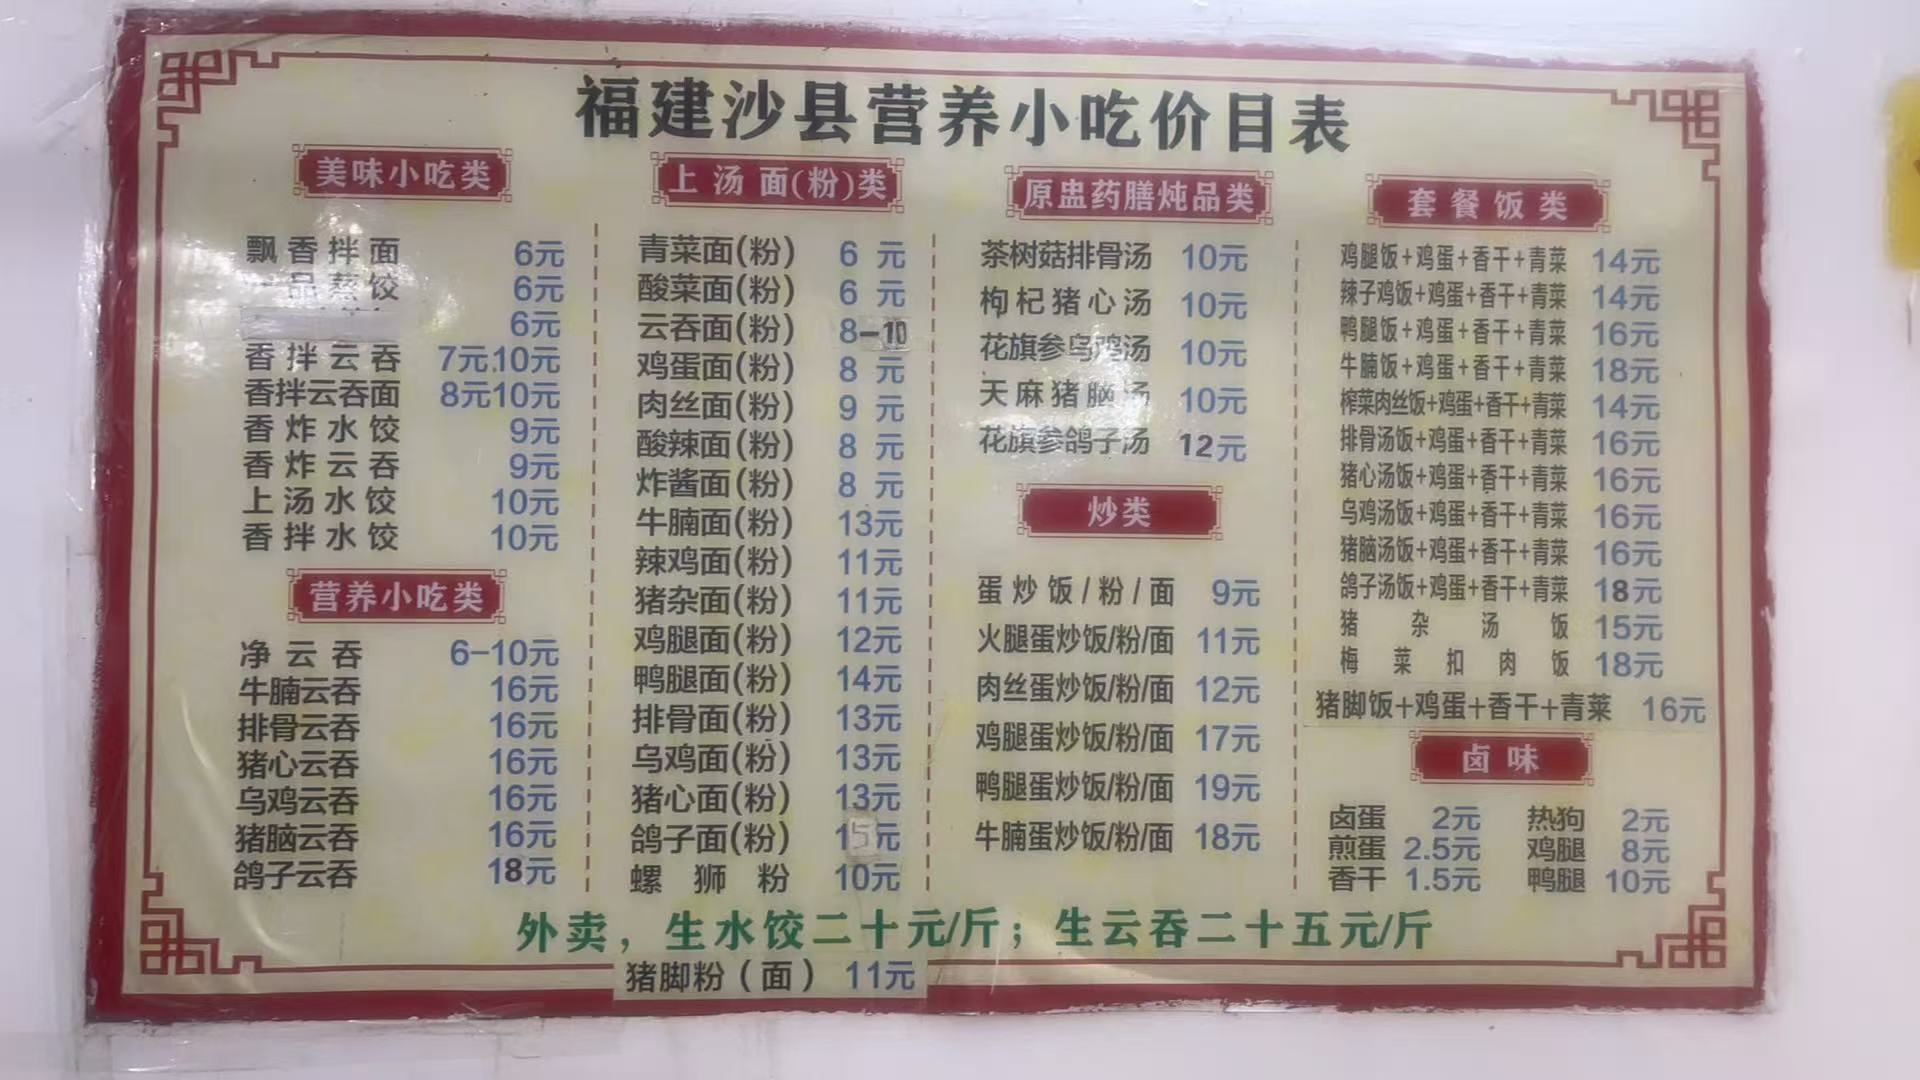 福建沙县营养小吃价目表
美味小吃类
飘香拌面 6元
一品蒸饺 6元
6元
香拌云吞 7元.10元
香拌云吞面 8元10元
香炸水饺 9元
香炸云吞 9元
上汤水饺 10元
香拌水饺 10元
营养小吃类
净云吞 6-10元
牛腩云吞 16元
排骨云吞 16元
猪心云吞 16元
乌鸡云吞 16元
猪脑云吞 16元
鸽子云吞 18元
上汤面(粉)类
青菜面(粉) 6元
酸菜面(粉) 6元
云吞面(粉) 8-10
鸡蛋面(粉) 8元
肉丝面(粉) 9元
酸辣面(粉) 8元
炸酱面(粉) 8元
牛腩面(粉) 13元
辣鸡面(粉) 11元
猪杂面(粉) 11元
鸡腿面(粉) 12元
鸭腿面(粉) 14元
排骨面(粉) 13元
乌鸡面(粉) 13元
猪心面(粉) 13元
鸽子面(粉) 15元
螺狮粉 10元
原盅药膳炖品类
茶树菇排骨汤 10元
枸杞猪心汤 10元
花旗参乌鸡汤 10元
天麻猪脑汤 10元
花旗参鸽子汤 12元
炒类
蛋炒饭/粉/面 9元
火腿蛋炒饭/粉/面 11元
肉丝蛋炒饭/粉/面 12元
鸡腿蛋炒饭/粉/面 17元
鸭腿蛋炒饭/粉/面 19元
牛腩蛋炒饭/粉/面 18元
套餐饭类
鸡腿饭+鸡蛋+香干+青菜 14元
辣子鸡饭+鸡蛋+香干+青菜 14元
鸭腿饭+鸡蛋+香干+青菜 16元
牛腩饭+鸡蛋+香干+青菜 18元
榨菜肉丝饭+鸡蛋+香干+青菜 14元
排骨汤饭+鸡蛋+香干+青菜 16元
猪心汤饭+鸡蛋+香干+青菜 16元
乌鸡汤饭+鸡蛋+香干+青菜 16元
猪脑汤饭+鸡蛋+香干+青菜 16元
鸽子汤饭+鸡蛋+香干+青菜 18元
猪杂汤饭 15元
梅菜扣肉饭 18元
猪脚饭+鸡蛋+香干+青菜 16元
卤味
卤蛋 2元 热狗 2元
煎蛋 2.5元 鸡腿 8元
香干 1.5元 鸭腿 10元
外卖，生水饺二十元/斤；生云吞二十五元/斤
猪脚粉（面） 11元